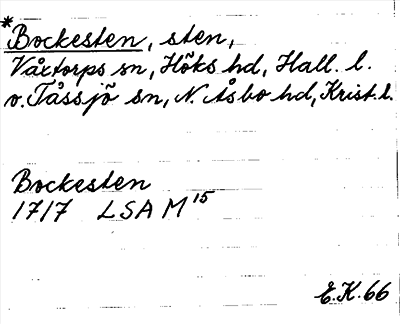 *Bockesten, sten,
Våxtorps sn, Höks hd, Hall. l.
o. Tåssjö sn, N. Åsbo hd, Krist. l.
Bockesten
1717 LSA M 15
E.K. 66